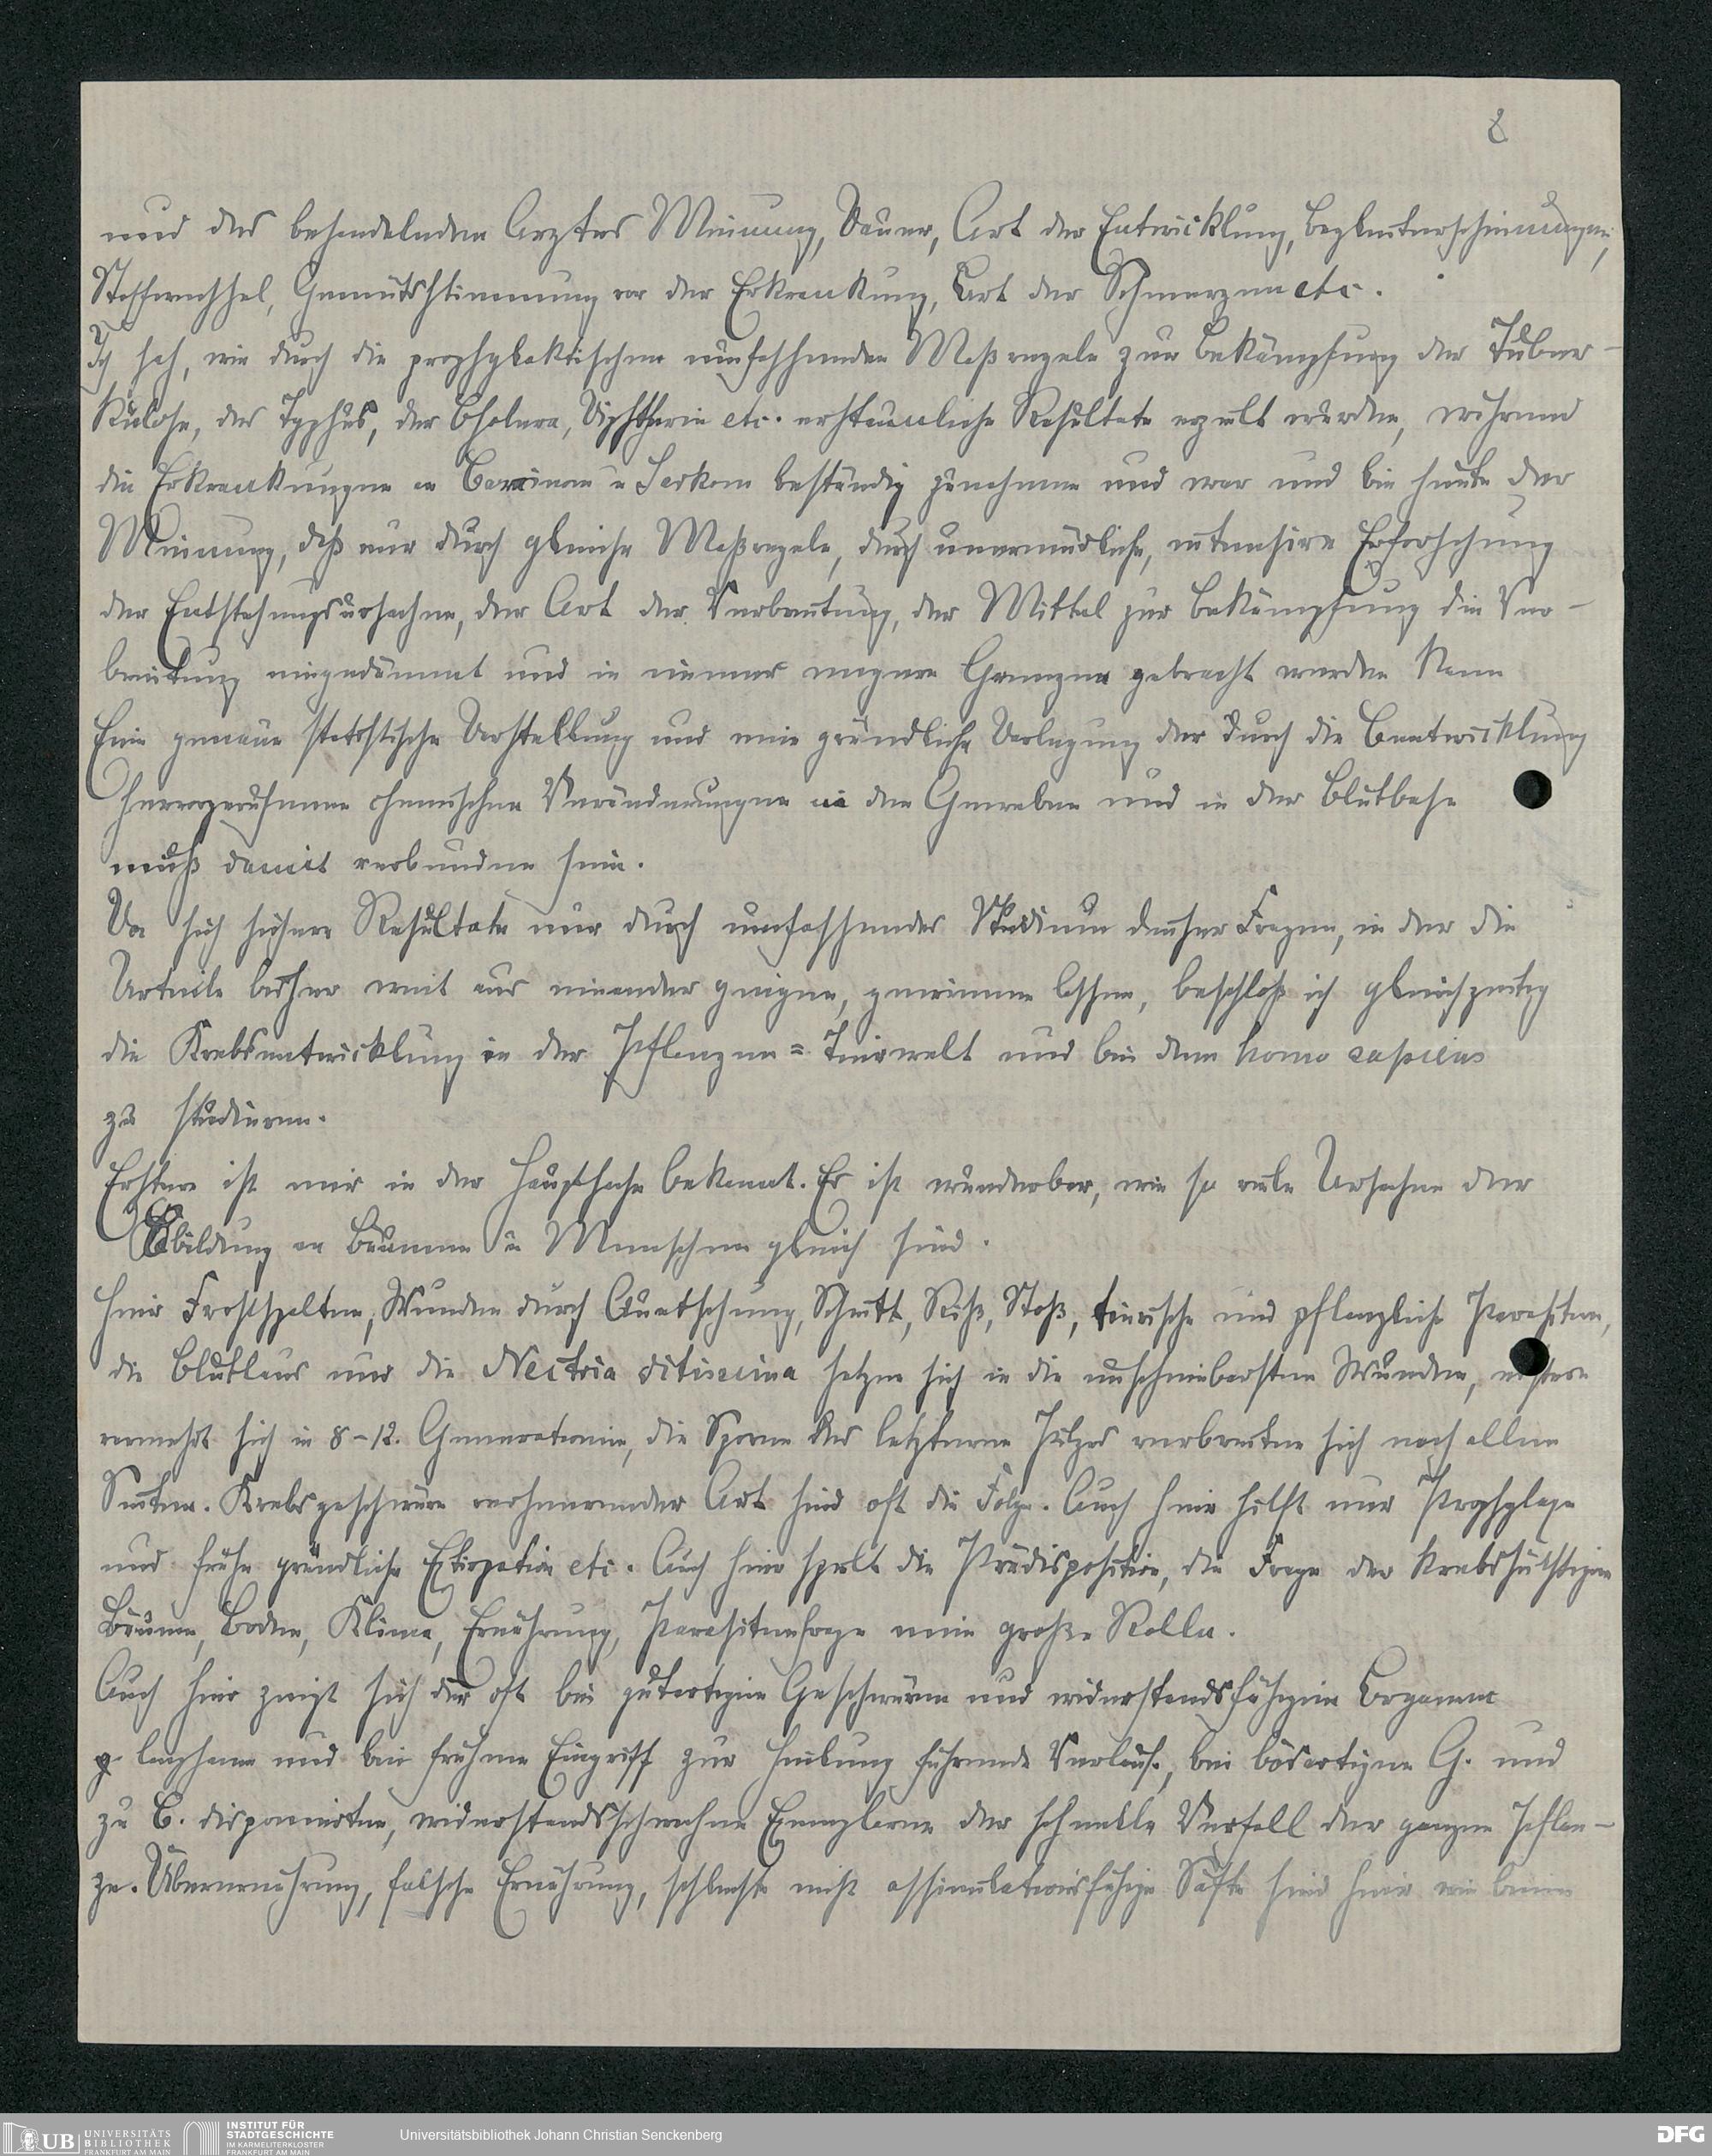 8
und des behandelnden Arztes Meinung, Dauer, Art der Entwicklung, Begleiterscheinungen,
Stoffwechsel, Gemütsstimmung vor der Erkrankung, Art der Schmerzen etc.
Ich sah, wie durch die prophylaktischen umfassenden Maßregeln zur Bekämpfung der Tuber-
kulose, des Typhus, der Cholera, Diphtherie etc. erstaunliche Resultate erzielt wurden, während
die Erkrankungen an Carcinom u Sarkom beständig zunehmen und war und bin heute der
Meinung, daß nur durch gleiche Maßregeln, durch unermüdliche, intensive Erforschung
der Entstehungsursachen, der Art der Verbreitung, der Mittel zur Bekämpfung die Ver-
breitung eingedämmt und in immer engere Grenzen gebracht werden kann
Eine genaue statistische Darstellung und eine gründliche Darlegung der durch die C entwicklung
hervorgerufenen chemischen Veränderungen in den Geweben und in der Blutbase
muß damit verbunden sein.
Da sich sichere Resultate nur durch umfassendes Studium dieser Fragen, in der die
Urteile bisher weit aus einander gingen, gewinnen lassen, beschloß ich gleichzeitig
die Krebsentwicklung in der Pflanzen= Tierwelt und bei dem homo sapiens
zu studieren.
Erstere ist mir in der Hauptsache bekannt. Es ist wunderbar, wie so viele Ursachen der
Cbildung an Bäumen u Menschen gleich sind.
Hier Frostspalten, Wunden durch Quetschung, Schnitt, Riß, Stoß, tierische und pflanzliche Parasiten,
die Blutlaus und die Nectria ditissima setzen sich in die unscheinbarsten Wunden, erstere
vermehrt sich in 8-12. Generationen, die Sporen des letzteren Pilzes verbreiten sich nach allen
Seiten. Krebsgeschwüre verheerender Art sind oft die Folge. Auch hier hilft nur Prophylaxe
und frühe gründliche Extirpation etc. Auch hier spielt die Prädisposition, die Frage der krebssüchtigen
Bäume, Boden, Klima, Ernährung, Parasitenfrage eine große Rolle.
Auch hier zeigt sich der oft bei gutartigen Geschwüren und widerstandsfähigen Organen
langsame und bei frühem Eingriff zur Heilung führende Verlauf, bei bösartigen G. und
zu C. disponierten, widerstandsschwachen Exemplaren der schnelle Verfall der ganzen Pflan-
ze. Überernährung, falsche Ernährung, schlechte nicht assimilationsfähige Säfte sind hier wie beim
UB UNIVERSITÄTS BIBLIOTHEK FRANKFURT AM MAIN
INSTITUT FÜR STADTGESCHICHTE IM KARMELITERKLOSTER FRANKFURT AM MAIN
Universitätsbibliothek Johann Christian Senckenberg
DFG